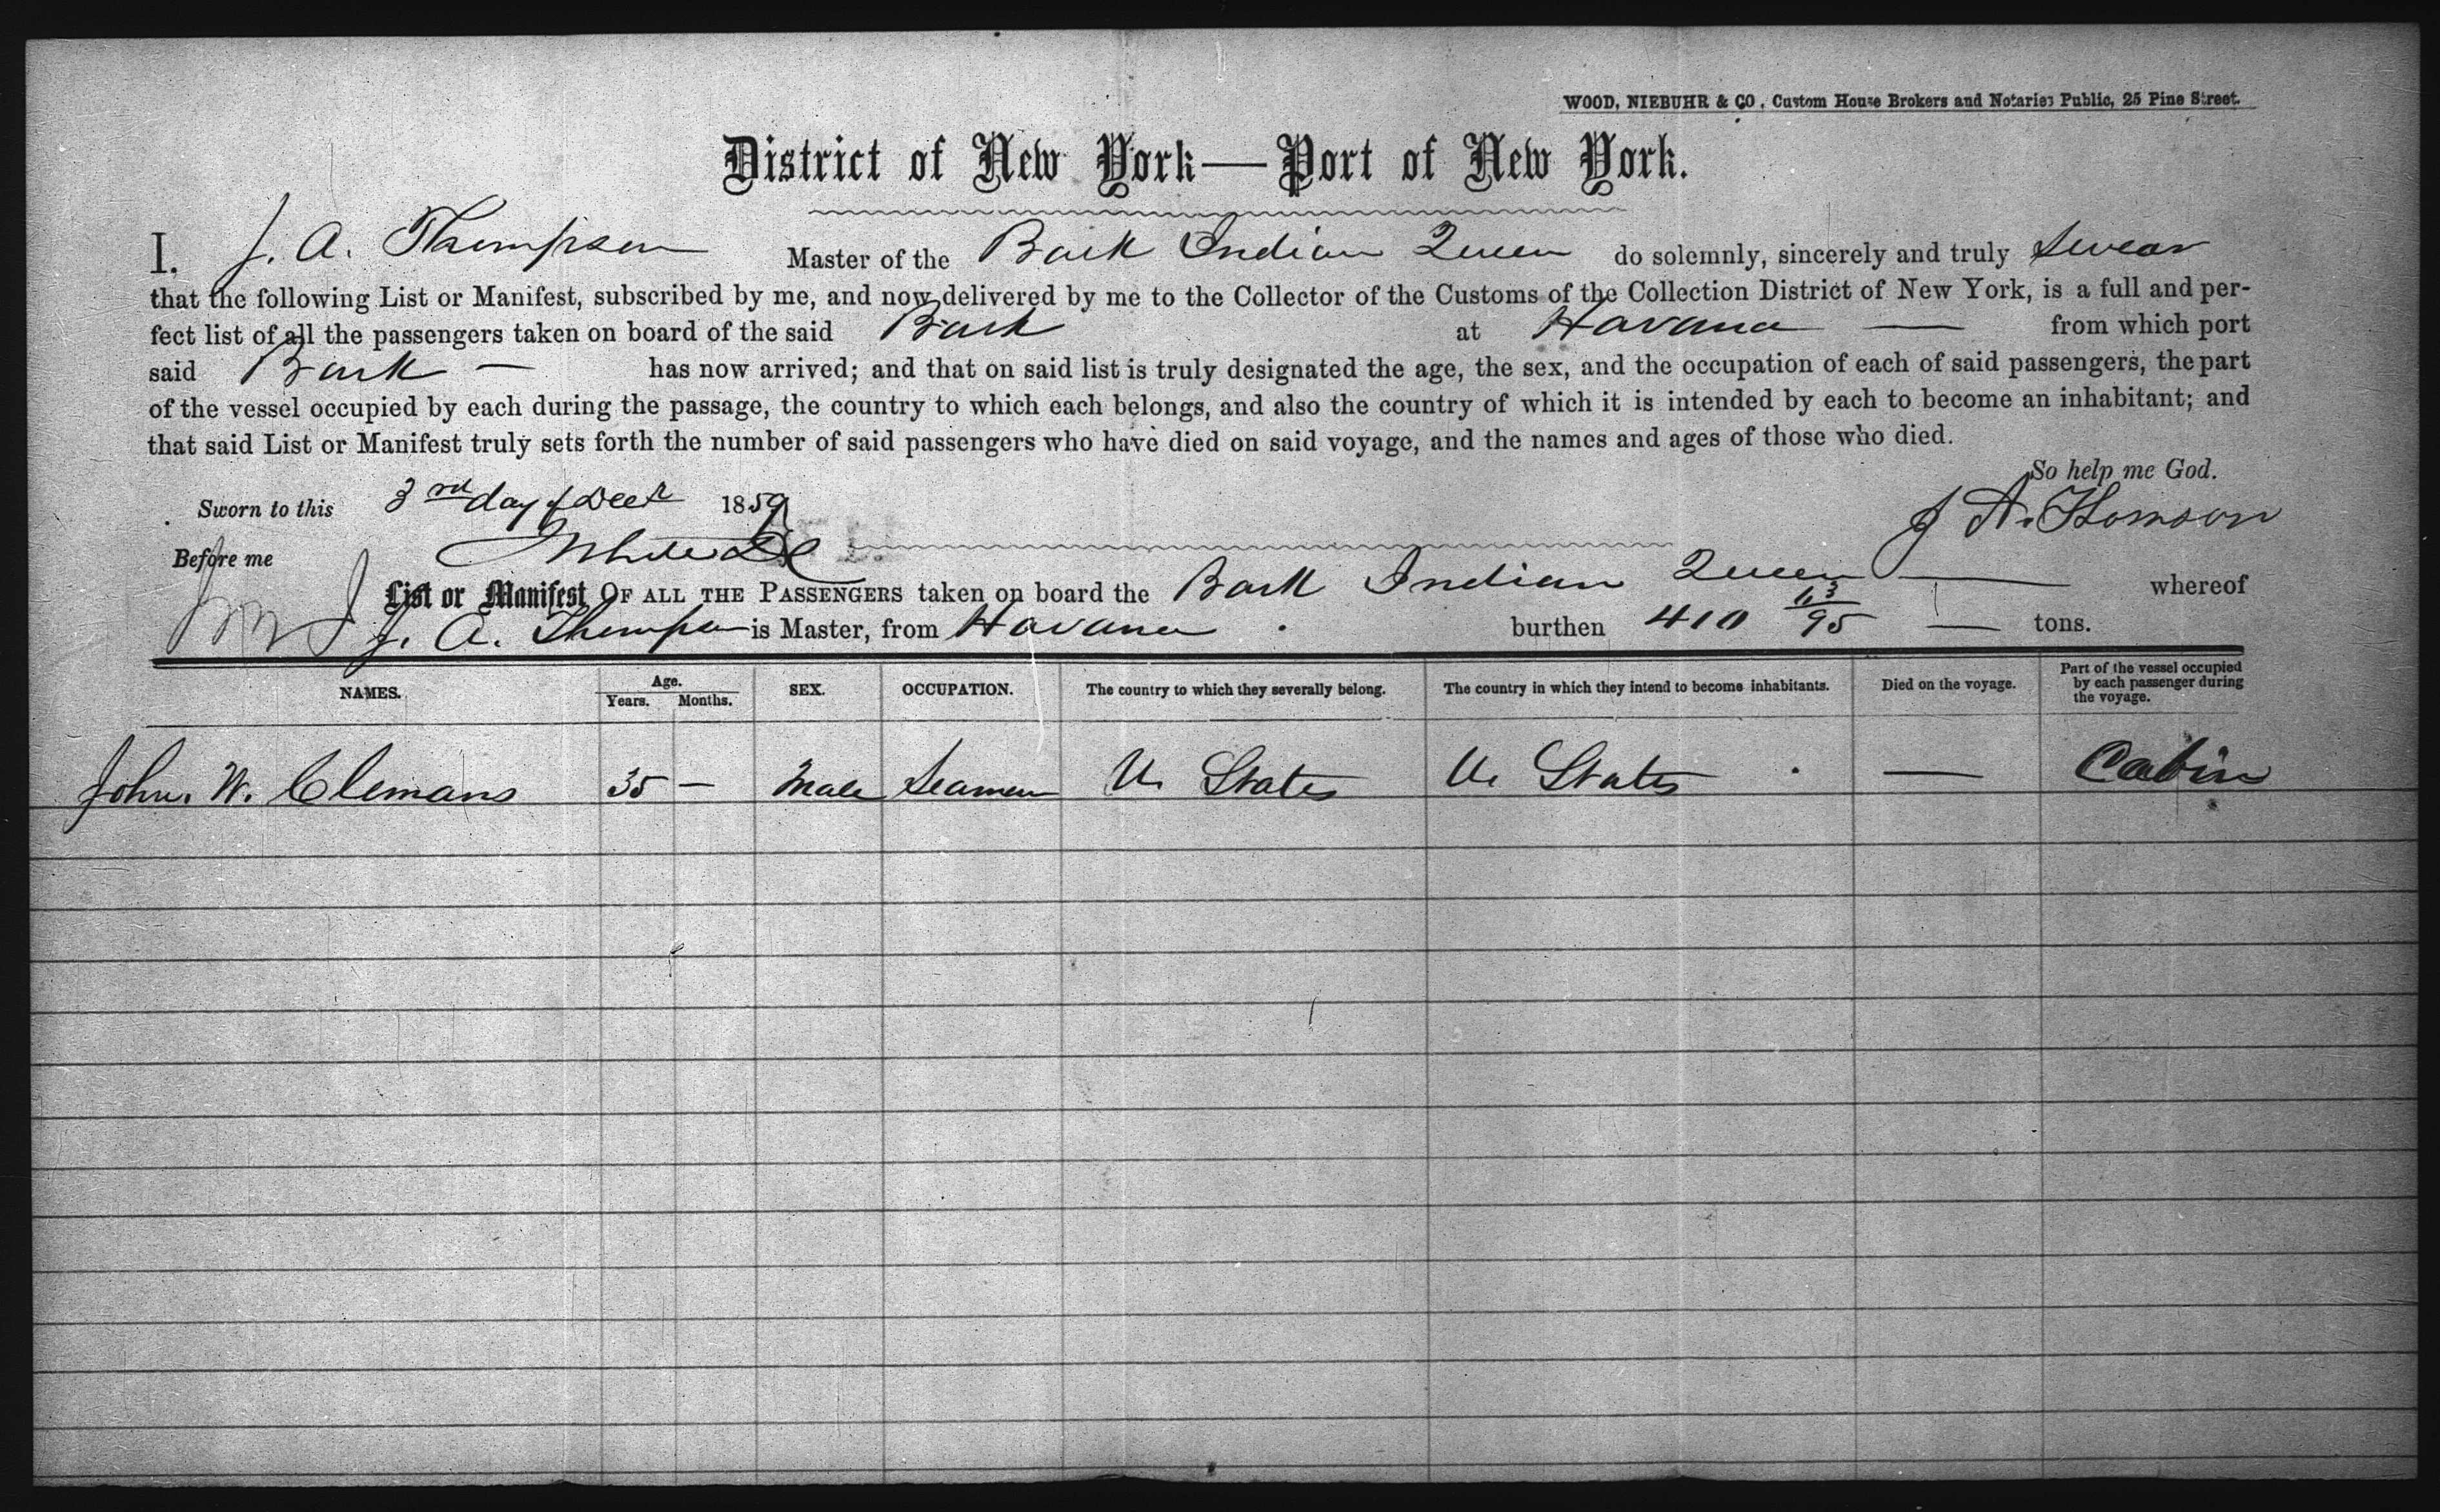 WOOD, NIEBUHR & CO, Custom House Brokers and Notaries Public, 25 Pine Street.
District of New York—Port of New York.
I. J. A. Thompson Master of the Bark Indian Queen do solemnly, sincerely and truly swear
that the following List or Manifest, subscribed by me, and now delivered by me to the Collector of the Customs of the Collection District of New York, is a full and per-
fect list of all the passengers taken on board of the said Bark at Havana — from which port
said Bark — has now arrived; and that on said list is truly designated the age, the sex, and the occupation of each of said passengers, the part
of the vessel occupied by each during the passage, the country to which each belongs, and also the country of which it is intended by each to become an inhabitant; and
that said List or Manifest truly sets forth the number of said passengers who have died on said voyage, and the names and ages of those who died.
So help me God.
Sworn to this 3rd day of Decr 1859
J A. Thomson
Before me
List or Manifest OF ALL THE PASSENGERS taken on board the Bark Indian Queen — whereof
J. A. Thompson is Master, from Havana . burthen 410 63/95 — tons.
NAMES. Age. Years. Months. SEX. OCCUPATION. The country to which they severally belong. The country in which they intend to become inhabitants. Died on the voyage. Part of the vessel occupied by each passenger during the voyage.
John. W. Clemans 35 — Male Seaman U. States U. States — Cabin